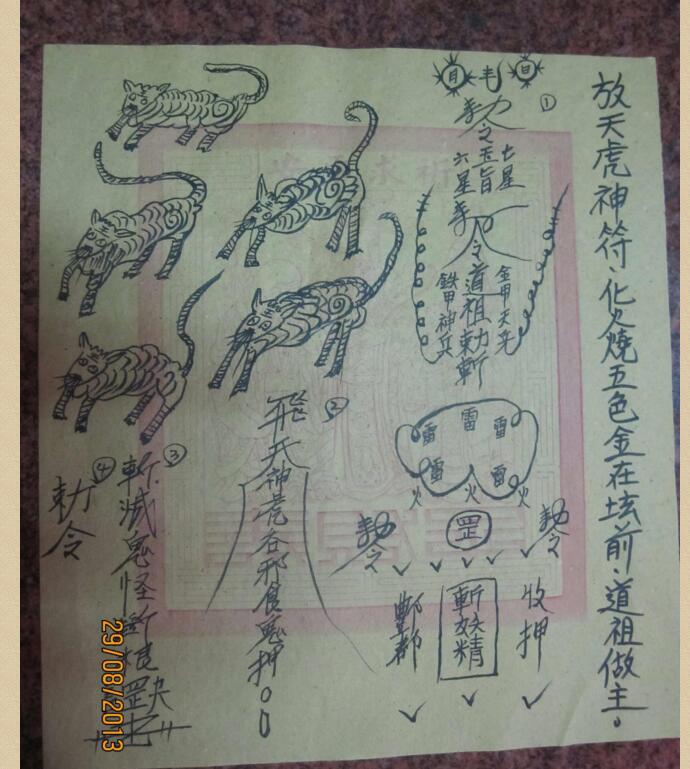 放天虎神符、化火燒五色金在坛前、道祖做主。
①
月 日
勅令
玉旨
七星
六星
令道祖勅斬
金甲天兵
鉄甲神兵
雷 雷 雷
雷 雷
火 火 火
罡
勅令 勅令
收押
斬妖精
酆都
②
飛天神虎吞邪食鬼押
③
斬滅鬼怪断根罡
④
勅令
29/08/2013